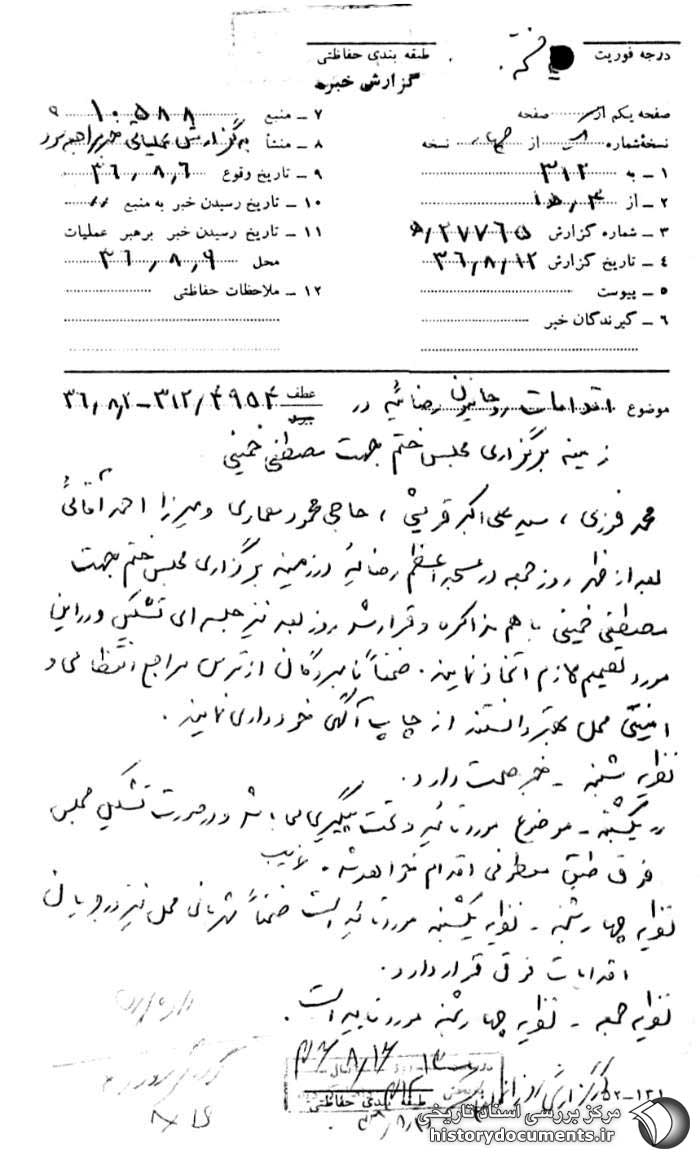 درجه فوریت
طبقه بندی حفاظتی
گزارش خبر
صفحه یکم از صفحه
نسخه شماره از چهار نسخه
۱ – به ۳۱۲
۲ – از ۴ ه ۱
۳ – شماره گزارش ۲۷۷۶۵/ه
۴ – تاریخ گزارش ۳۶/۸/۱۲
۵ – پیوست
۶ – گیرندگان خبر
۷ – منبع ۱۰۵۸۸
۸ – منشأ به گزارش عملیاتی خبر مراجعه شود
۹ – تاریخ وقوع ۳۶/۸/۶
۱۰ – تاریخ رسیدن خبر به منبع //
۱۱ – تاریخ رسیدن خبر برهبر عملیات
محل ۳۶/۸/۹
۱۲ – ملاحظات حفاظتی
موضوع اقدامات روحانیون رضائیه در عطف ۳۱۲/۴۹۵۴–۳۶/۸/۲
زمینه برگزاری مجلس ختم جهت مصطفی خمینی
محمد فوزی ، سید علی اکبر قریشی ، حاجی محمود معماری و میرزا احمد آقائی
بعد از ظهر روز جمعه در مسجد اعظم رضائیه در زمینه برگزاری مجلس ختم جهت
مصطفی خمینی با هم مذاکره و قرار شد روز بعد نیز جلسه ای تشکیل و در این
مورد تصمیم لازم اتخاذ نمایند . ضمناً نامبردگان از ترس مراجع انتظامی و
امنیتی محل بهتر دانستند از چاپ آگهی خودداری نمایند .
نظریه شنبه – خبر صحت دارد .
یکشنبه – موضوع مورد تائید و تحت پیگیری می باشد و در صورت تشکیل مجلس
فوق طبق مقررات اقدام خواهد شد .
نظریه چهارشنبه – نظریه یکشنبه مورد تائید است ضمناً شهربانی محل نیز در جریان
اقدامات فوق قرار دارد .
نظریه جمعه – نظریه چهارشنبه مورد تایید است .
۳۶/۸/۱۲
۱۲۱–۵۲
طبقه بندی حفاظتی
مرکز بررسی اسناد تاریخی
historydocuments.ir